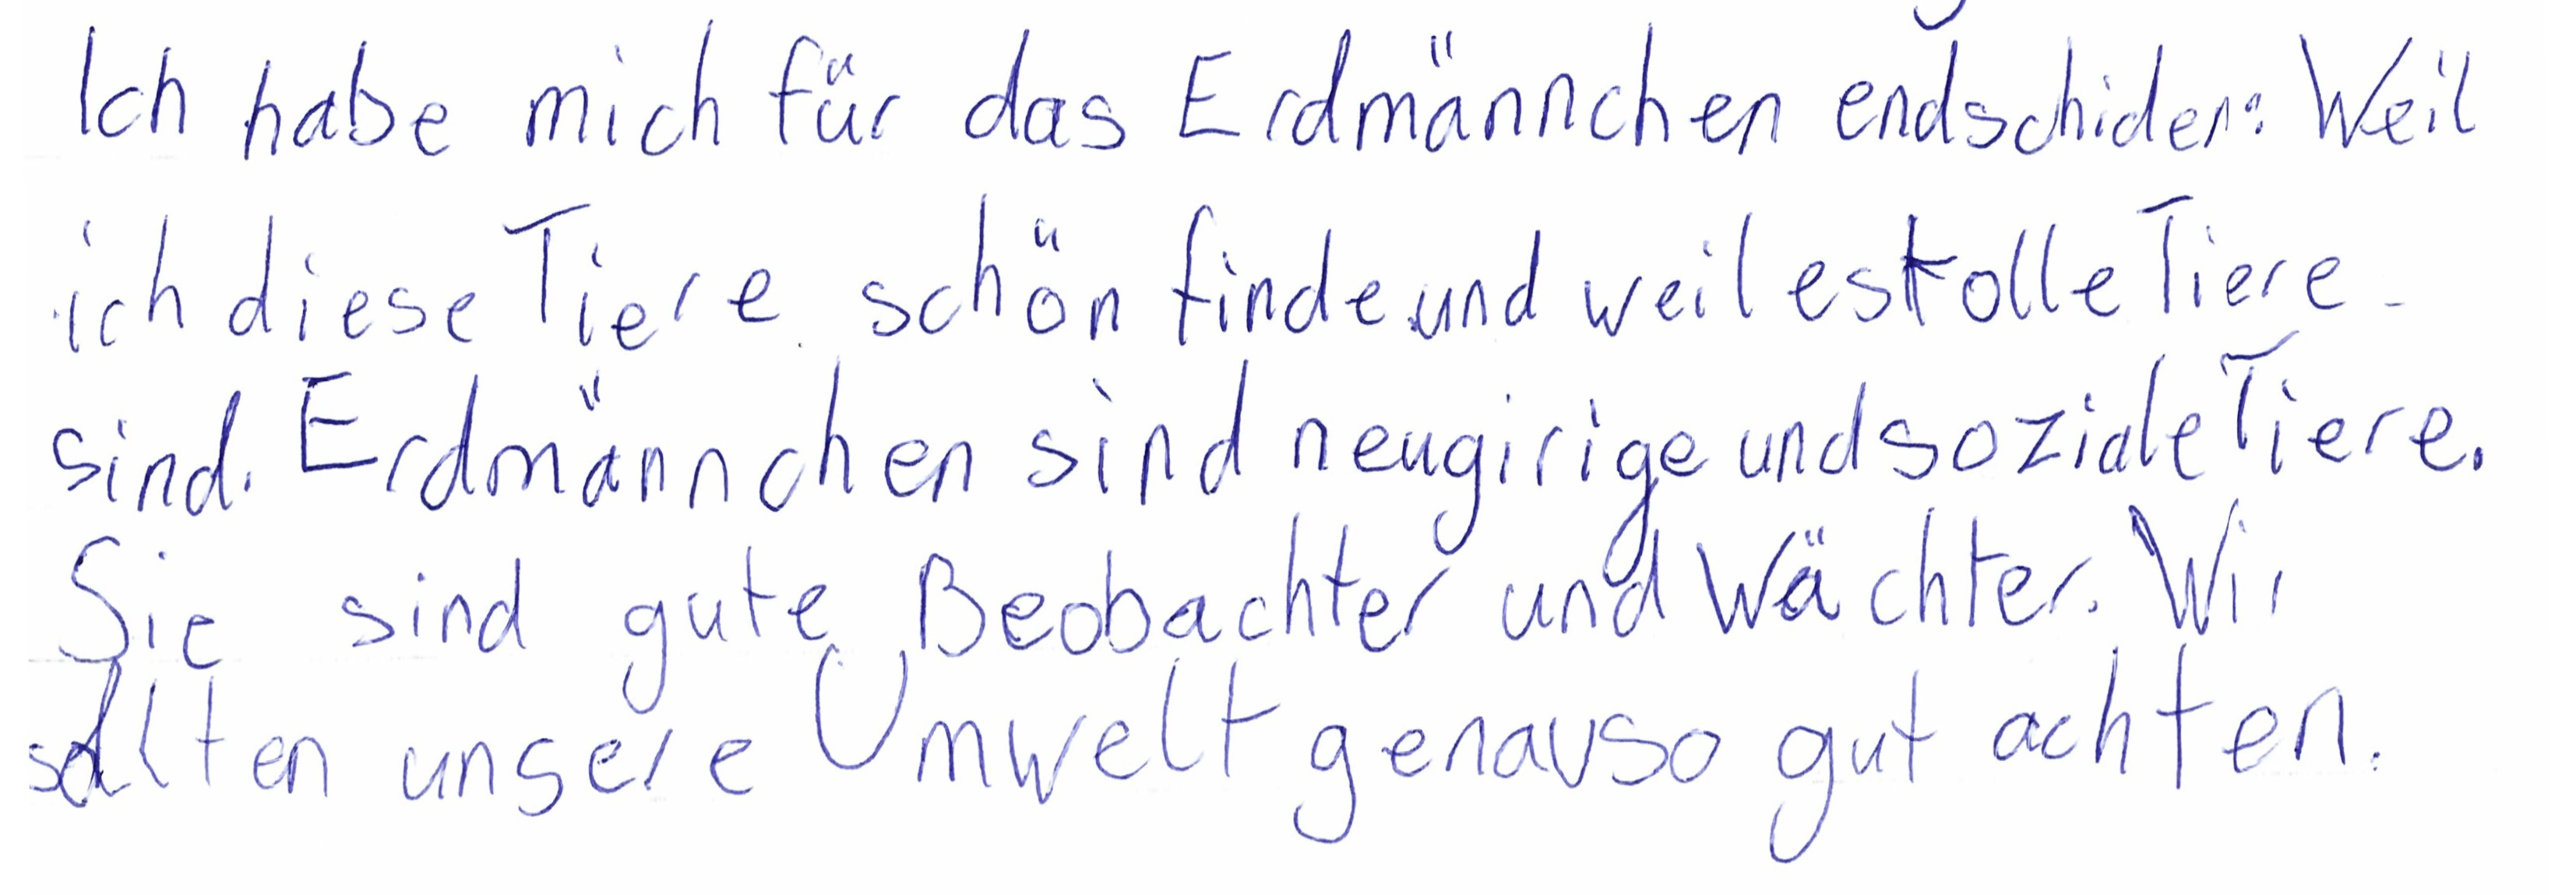 Ich habe mich für das Erdmännchen endschiden: Weil
ich diese Tiere schön finde und weil es tolle Tiere
sind. Erdmännchen sind neugirige und soziale Tiere.
Sie sind gute Beobachter und Wächter. Wir
sollten unsere Umwelt genauso gut achten.